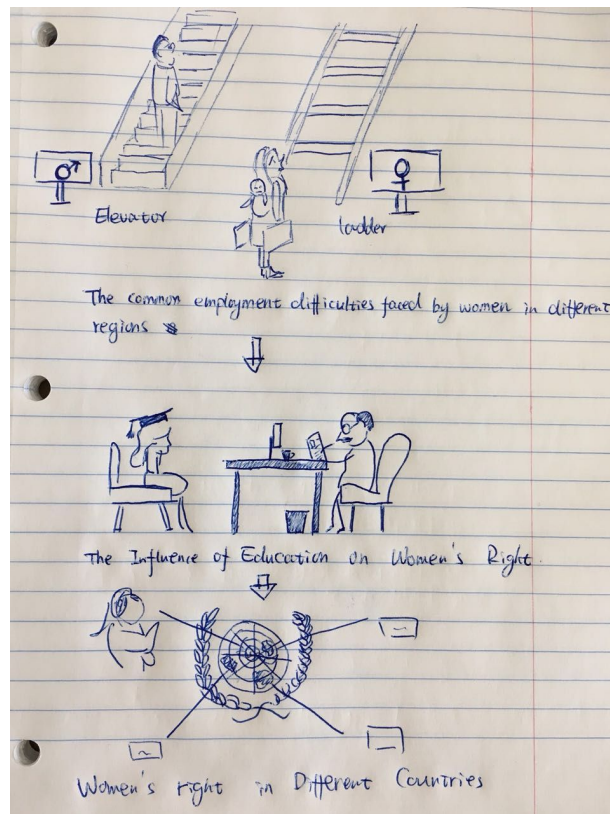 Elevator
ladder
The common employment difficulties faced by women in different
regions
The Influence of Education on Women's Right.
Women's right in Different Countries